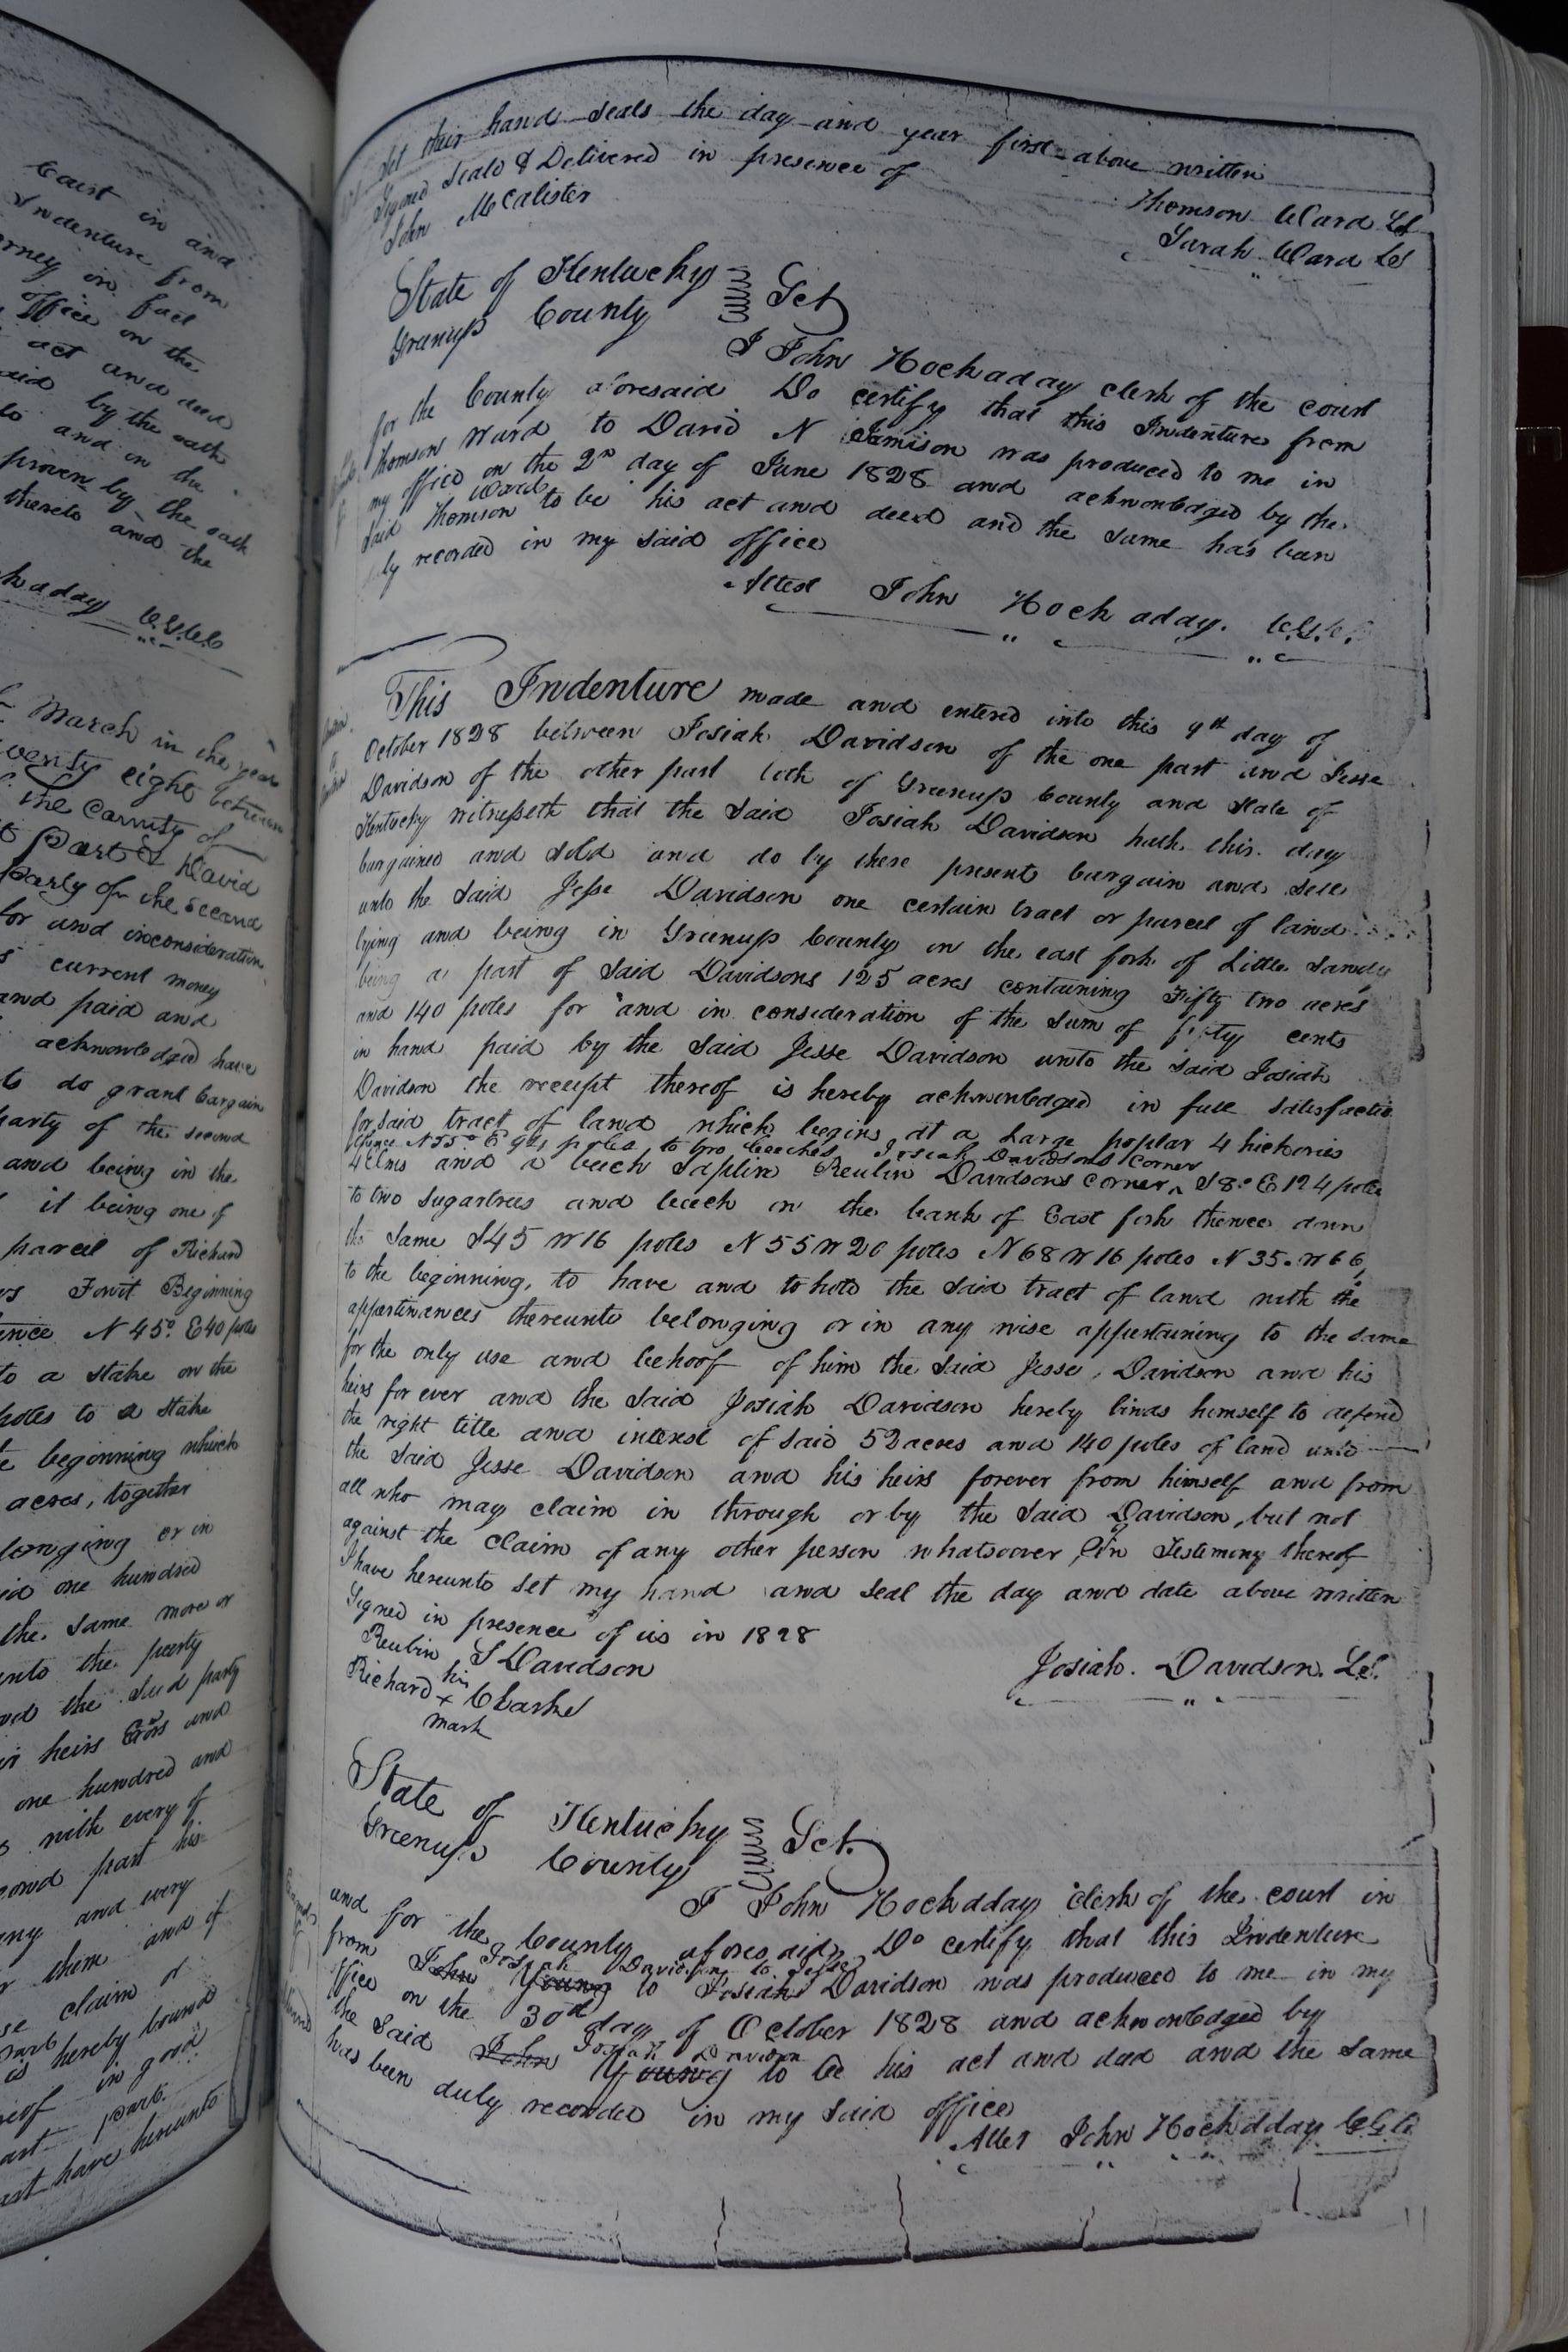 Court in and
Indenture from
in fact
office on the
act and deed
by the oath
to and in the
proven by the oath
thereto and the
haday C.G.C.C
March in the year
twenty eight between
the County of
Part & David
Party of the second
for and inconsideration
current money
and paid and
acknowledged have
do grant bargain
party of the second
and being in the
it being one of
parcel of Richard
Beginning
N 45° E 40 poles
to a stake on the
poles to a stake
beginning which
acres, together
belonging or in
one hundred
the same more or
unto the party
and the said party
heirs and
one hundred and
with every of
second part his
and every
them and if
claim or
is hereby bound
in good
part
have hereunto
set their hand seals the day and year first above written
Signed Seald & Delivered in presence of
John McCalister
Thomson Ward LS
Sarah Ward LS
State of Kentucky
Greenup County Sct
I John Hockaday clerk of the court
for the County aforesaid Do certify that this Indenture from
Thomson Ward to David N Jamison was produced to me in
my office on the 2nd day of June 1828 and acknowledged by the
said Thomson Ward to be his act and deed and the same has been
recorded in my said office
Attest John Hockaday. C.G.C.C.
This Indenture made and entered into this 9th day of
October 1828 between Josiah Davidson of the one part and Jesse
Davidson of the other part both of Greenup County and state of
Kentucky witnesseth that the said Josiah Davidson hath this day
bargained and sold and do by these present bargain and sell
unto the said Jesse Davidson one certain tract or parcel of land
lying and being in Greenup County on the east fork of Little Sandy
being a part of said Davidsons 125 acres containing Fifty two acres
and 140 poles for and in consideration of the sum of cents
in hand paid by the said Jesse Davidson unto the said Josiah
Davidson the receipt thereof is hereby acknowledged in full satisfaction
for said tract of land which begins at a Large poplar 4 hickories
thence N 55° E poles to two beeches Josiah Davidsons Corner
4 Elms and a beech saplin Reubin Davidsons corner S 8° E 124 poles
to two sugartrees and beech on the bank of East fork thence down
the same S45 W 16 poles N 55 W 20 poles N 68 W 16 poles N 35. W 66
to the beginning, to have and to hold the said tract of land with the
appertinances thereunto belonging or in any wise appertaining to the same
for the only use and behoof of him the said Jesse Davidson and his
heirs for ever and the said Josiah Davidson hereby binds himself to defend
the right title and interest of said 52 acres and 140 poles of land unto
the said Jesse Davidson and his heirs forever from himself and from
all who may claim in through or by the said Davidson, but not
against the claim of any other person whatsoever In Testimony thereof
I have hereunto set my hand and seal the day and date above written
Signed in presence of us in 1828
Reubin S Davidson
Richard his x mark Clarke
Josiah. Davidson. LS.
State of Kentucky
Greenup County Sct.
I John Hockaday clerk of the court in
and for the County aforesaid Do certify that this Indenture
Josiah Davidson to Jesse
from John Young to Josiah Davidson was produced to me in my
office on the 30th day of October 1828 and acknowledged by
Josiah Davidson
the said John Young to be his act and deed and the same
has been duly recorded in my said office
Attest John Hockaday C.G.C.C